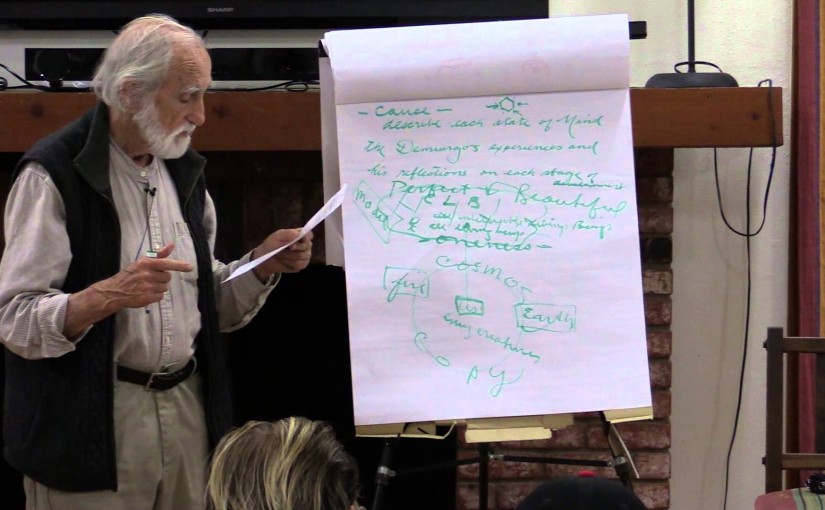 SHARP
- Cause -
describe each state of Mind
The Demiurgos experiences and
his reflections on each stage of
Perfect & Beautiful
Model
CLB
all intelligible living Beings
all living beings
- oneness -
COSMOS
fire
us
Earth
creatures
COPY